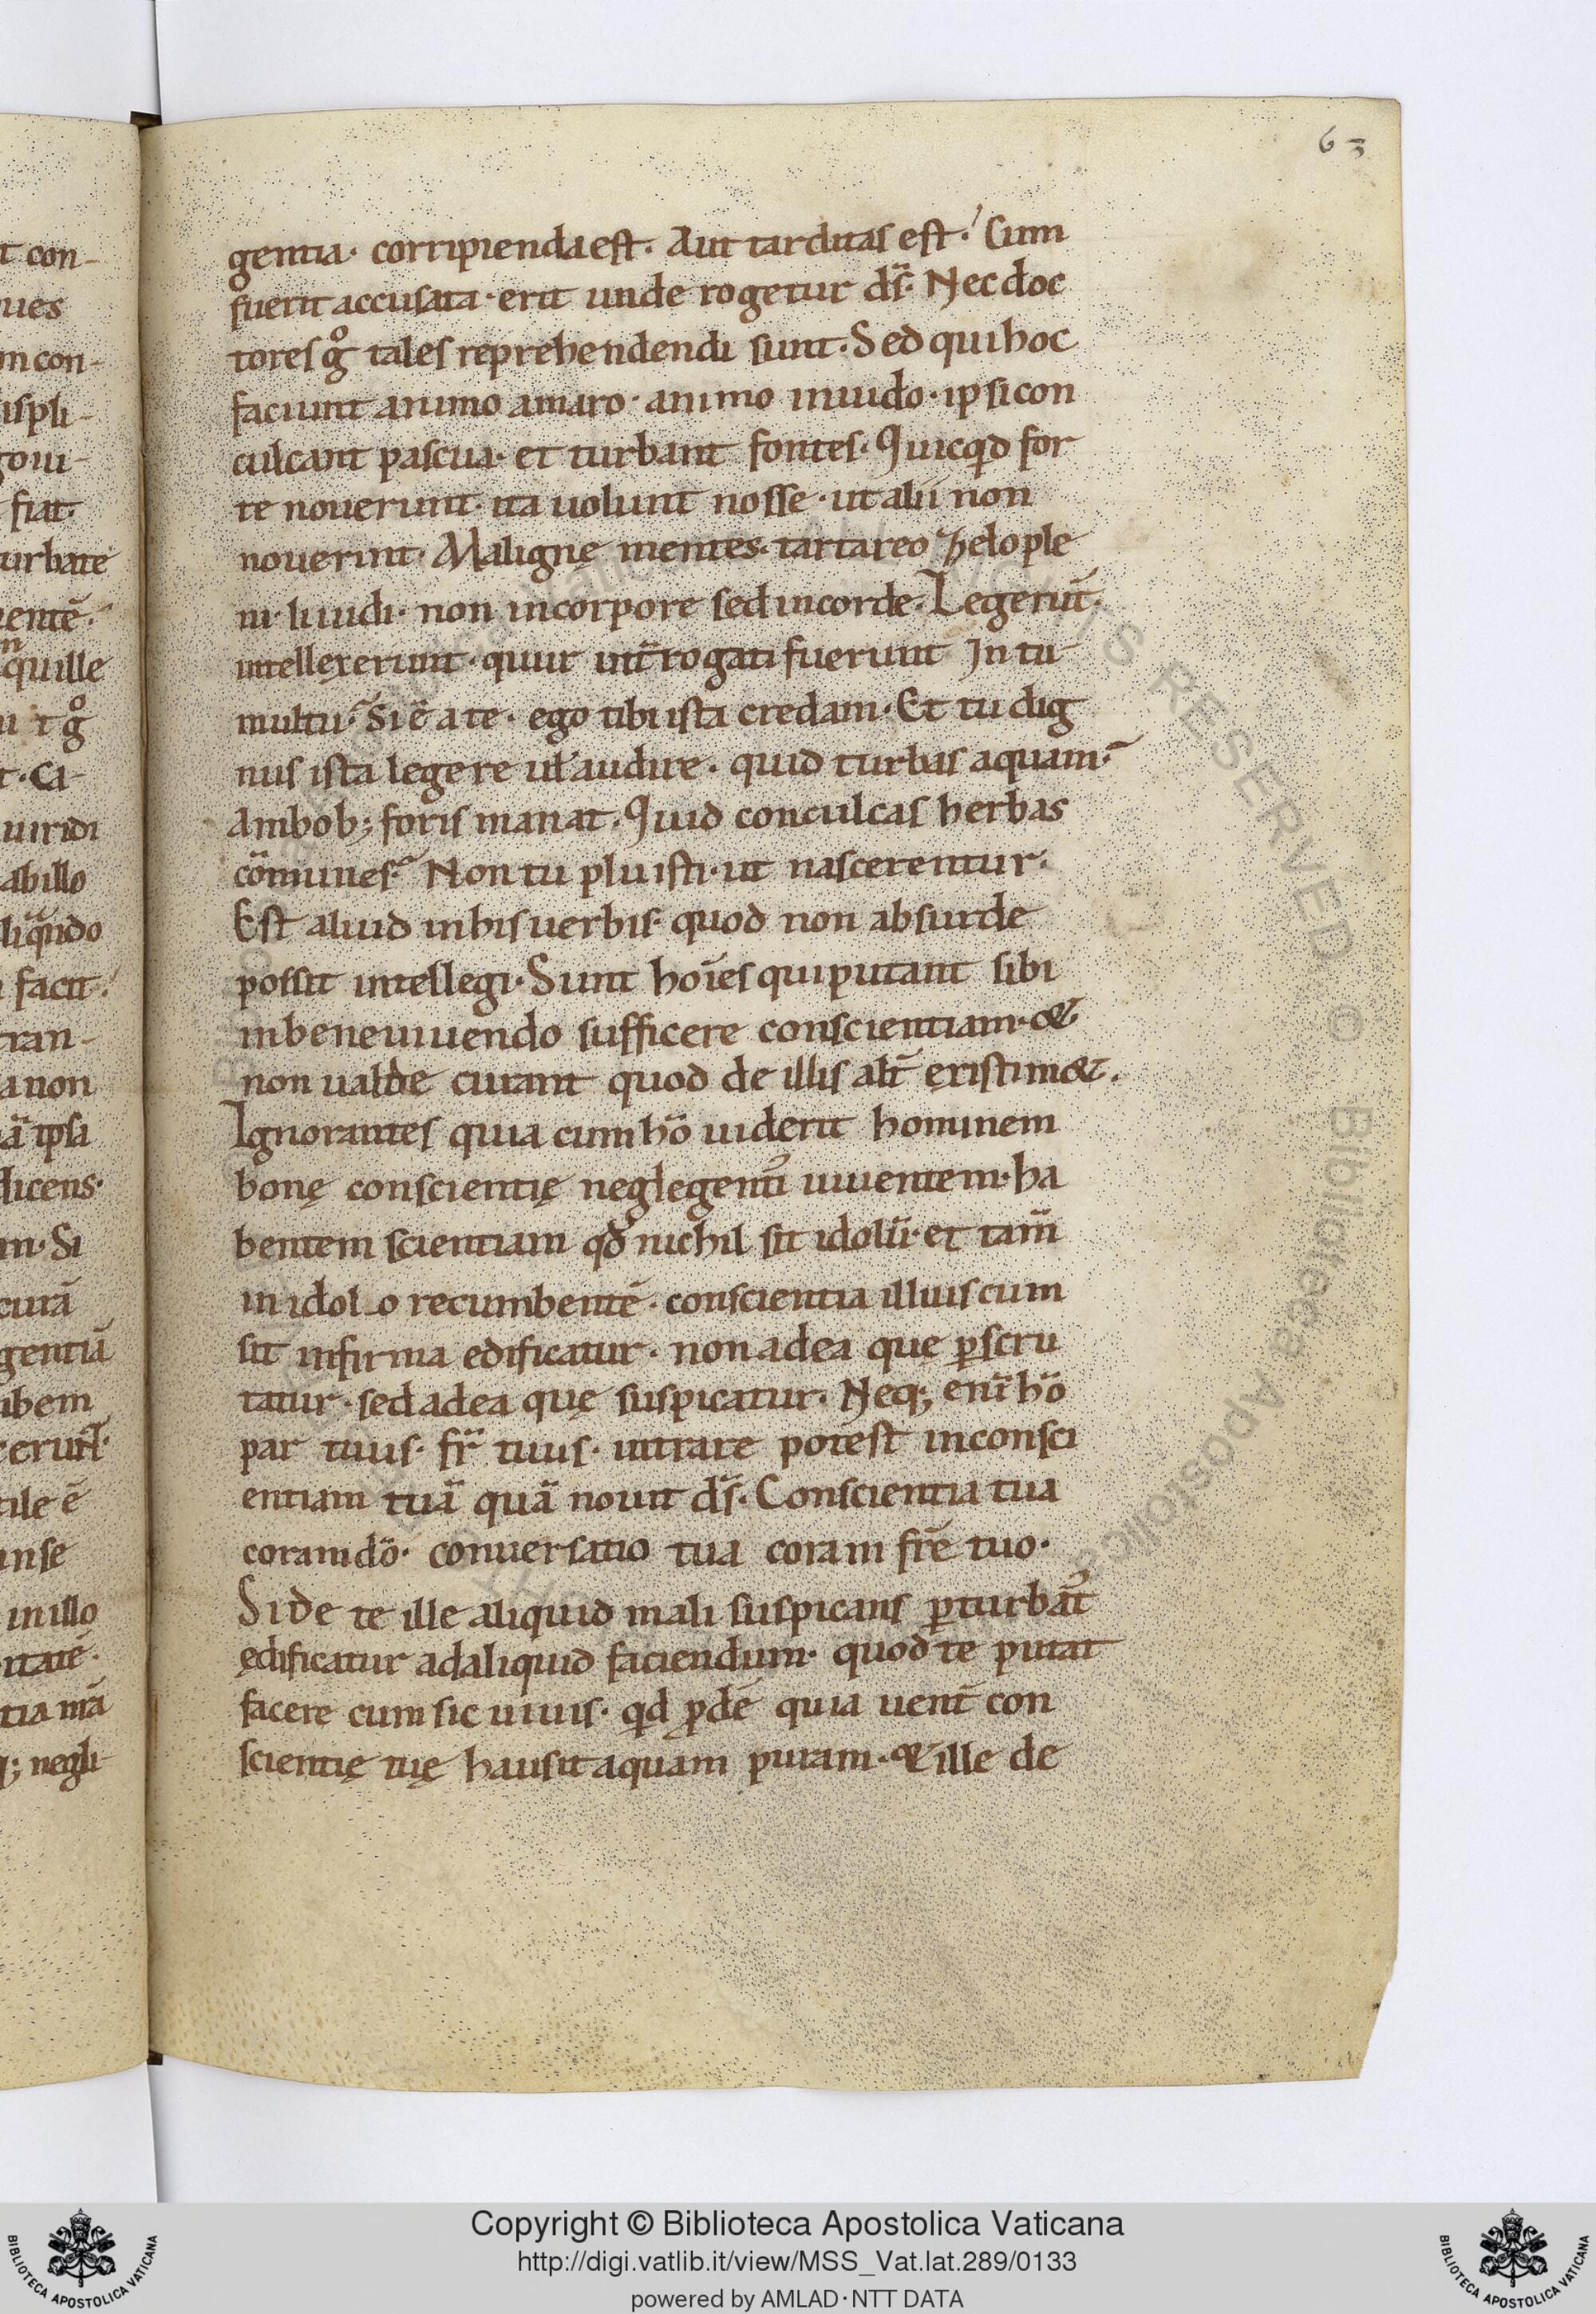 63
t con-
gentia· corripienda est· Aut tarditas est·' Cum
ues
fuerit accusata· erit unde rogetur ds̄· Nec doc
m con-
tores g̊ tales reprehendendi sunt· Sed qui hoc
ispli-
faciunt animo amaro· animo inuido· ipsi con
goui-
culcant pascua· et turbant fontes· Quicq̇d for
fiat·
te nouerunt· ita uolunt nosse· ut alii non
urbate
nouerint· Malignę mentes· tartareo zelo ple
entē·
ni· liuidi· non in corpore sed in corde· Legerūt·
quille
intellexerunt· quur int̄rogati fuerunt In tu
u t g̊
multu· Si ē a te· ego tibi ista credam· Et tu dig
t· Ca-
nus ista legere uł audire· quid turbas aquam·
uiridi
Ambob; foris manat· Quid conculcas herbas
abillo
cōmunes· Non tu pluisti· ut nascerentur·
liq̄ndo
Est aliud in his uerbis· quod non absurde
facit·
possit intellegi· Sunt hoīes qui putant sibi
tran-
in bene uiuendo sufficere conscientiam· &
a non
non ualde curant quod de illis alt̄ existim&·
ā ipsa
Ignorantes quia cum hō uiderit hominem
dicens·
bonę conscientię neglegenti᷒ uiuentem· ha
m· Si
bentem scientiam qđ nichil sit idolū· et tam̄
curā
in idolo recumbentē· conscientia illius cum
gentiā
sit infirma edificatur· non ad ea quę ꝑscru
ibem
tatur· sed ad ea quę suspicatur· Neq; enī hō
cerunt·
par tuus· fr̄ tuus· intrare potest in consci
tile ē
entiam tuā quā nouit ds̄· Conscientia tua
in se
coram dō· conuersatio tua coram fr̄e tuo·
in illo
Si de te ille aliquid mali suspicans ꝑturbat᷒
itatē·
ędificatur ad aliquid faciendum· quod te putat
tia mā
facere cum sic uiuis· qd ꝓdē quia uent̄ con
q; negli-
scientię tuę hausit aquam puram· & ille de
Copyright © Biblioteca Apostolica Vaticana
http://digi.vatlib.it/view/MSS_Vat.lat.289/0133
powered by AMLAD·NTT DATA